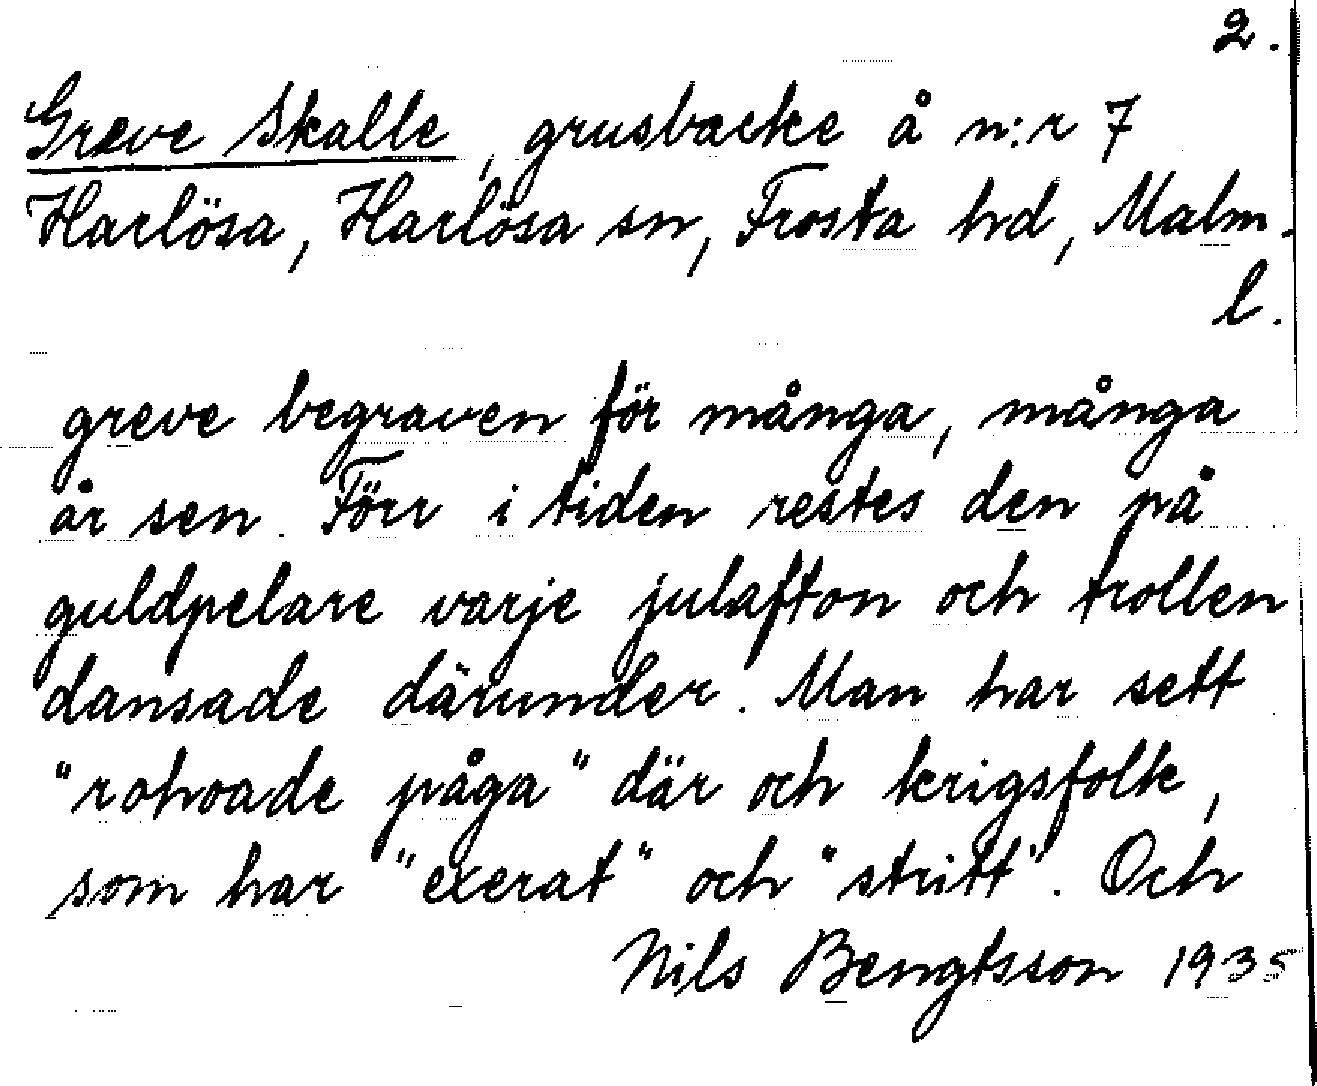 2.
Greve Skalle, grusbacke å n:r 7
Harlösa, Harlösa sn, Frosta hd, Malm.
l.
greve begraven för många, många
år sen. Förr i tiden restes den på
guldpelare varje julafton och trollen
dansade därunder. Man har sett
"rohoade påga" där och krigsfolk,
som har "exerat" och "stritt". Och
Nils Bengtsson 1935